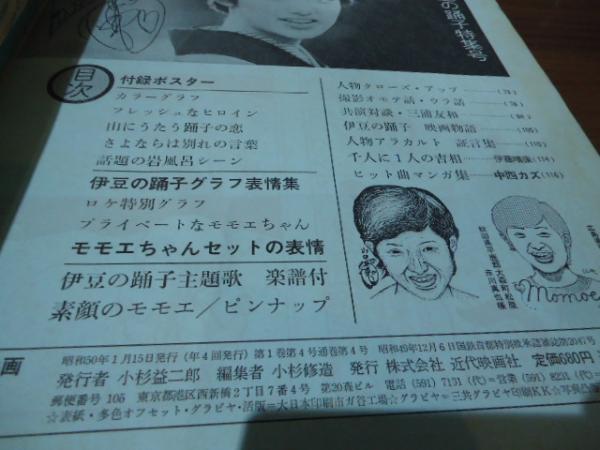 の踊子特集号
目次
付録ポスター
カラーグラフ
フレッシュなヒロイン
山にうたう踊子の恋
さよならは別れの言葉
話題の岩風呂シーン
伊豆の踊子グラフ表情集
ロケ特別グラフ
プライベートなモモエちゃん
モモエちゃんセットの表情
伊豆の踊子主題歌 楽譜付
素顔のモモエ/ピンナップ
人物クローズ・アップ……(73)
撮影オモテ話・ウラ話……(78)
共演対談・三浦友和……(98)
伊豆の踊子 映画物語……(105)
人物アラカルト 証言集……(110)
千人に1人の吉相……伊藤晴康(114)
ヒット曲マンガ集……中西カズ(116)
Momoe
画
昭和50年1月15日発行(年4回発行)第1巻第4号通巻第4号 昭和49年12月6日国鉄首都特別扱承認雑誌第2047号
発行者 小杉益二郎 編集者 小杉修造 発行 株式会社 近代映画社 定価680円
郵便番号105 東京都港区西新橋2丁目7番4号 第20森ビル 電話(591)7131(代)=営業(591)8231(代)=
☆表紙・多色オフセット・グラビヤ・活版=大日本印刷市ガ谷工場☆グラビヤ=三共グラビヤ印刷KK☆写真公